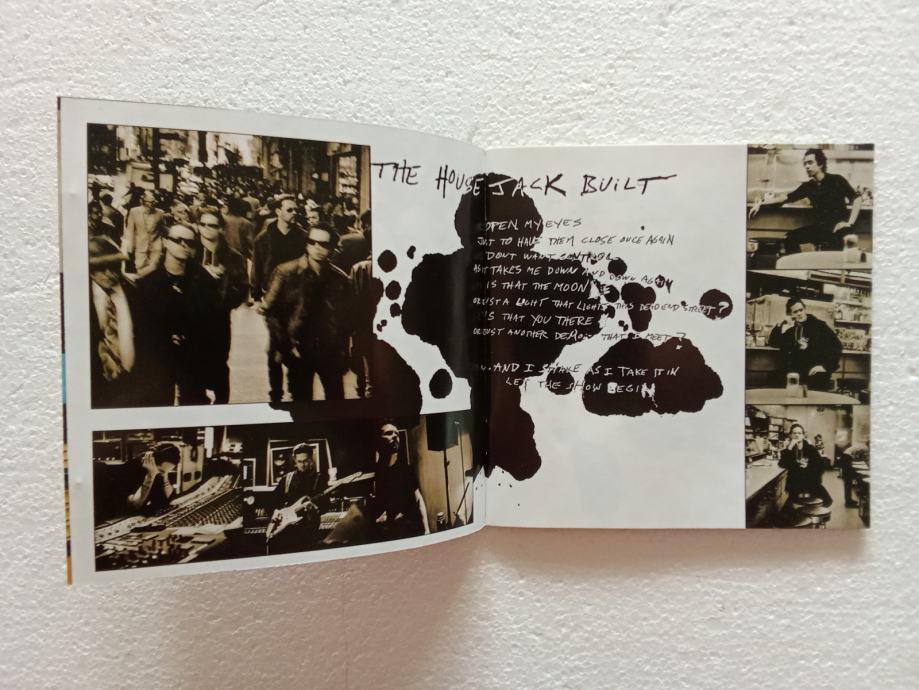 THE HOUSE JACK BUILT
OPEN MY EYES
JUST TO HAVE THEM CLOSE ONCE AGAIN
DON'T WANT CONTROL
AS IT TAKES ME DOWN AND DOWN AGAIN
IS THAT THE MOON
OR JUST A LIGHT THAT LIGHTS THIS DEAD END STREET?
IS THAT YOU THERE
OR JUST ANOTHER DEMON THAT I MEET?
AND I SHAKE AS I TAKE IT IN
LET THE SHOW BEGIN